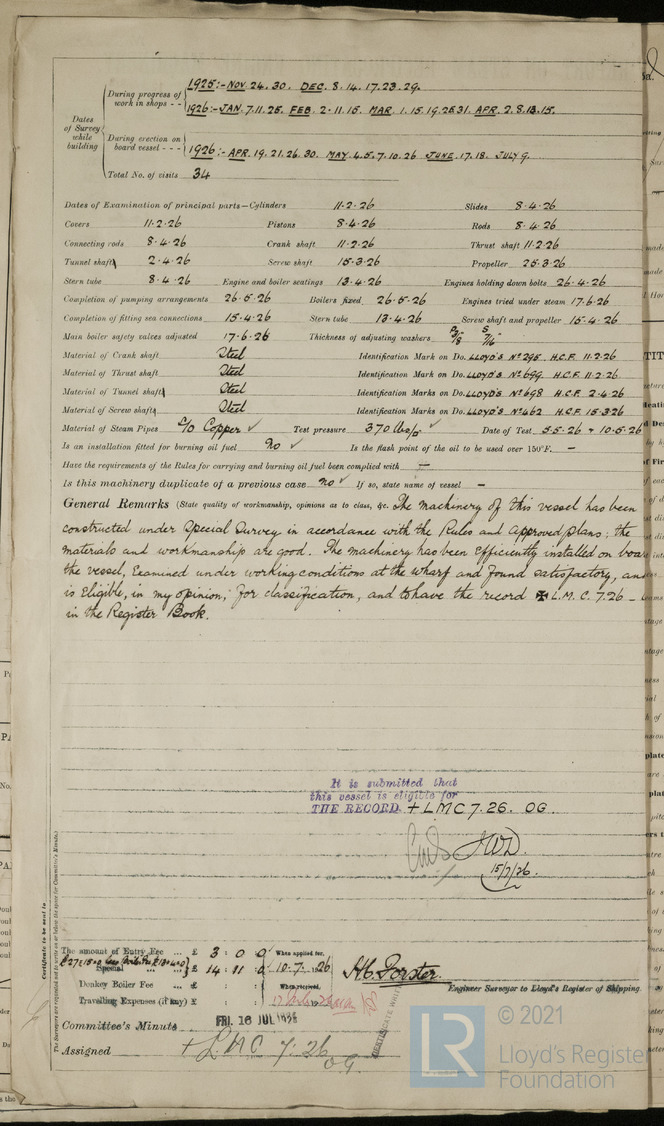 1925:- NOV. 24. 30. DEC. 8. 14. 17. 23. 29.
During progress of work in shops - -
1926:- JAN. 7. 11. 25. FEB. 2 - 11. 15. MAR. 1. 15. 19. 25. 31. APR. 2. 8. 13. 15.
Dates of Survey while building
During erection on board vessel - - -
1926:- APR. 19. 21. 26. 30. MAY. 4. 5. 7. 10. 26 JUNE. 17. 18. JULY 9.
Total No. of visits 34
Dates of Examination of principal parts—Cylinders 11-2-26 Slides 8-4-26
Covers 11-2-26 Pistons 8-4-26 Rods 8-4-26
Connecting rods 8-4-26 Crank shaft 11-2-26 Thrust shaft 11-2-26
Tunnel shaft 2-4-26 Screw shaft 15-3-26 Propeller 25-3-26
Stern tube 8-4-26 Engine and boiler seatings 13-4-26 Engines holding down bolts 26-4-26
Completion of pumping arrangements 26-5-26 Boilers fixed 26-5-26 Engines tried under steam 17-6-26
Completion of fitting sea connections 15-4-26 Stern tube 13-4-26 Screw shaft and propeller 15-4-26
Main boiler safety valves adjusted 17-6-26 Thickness of adjusting washers P 3/8 S 7/16
Material of Crank shaft Steel Identification Mark on Do. LLOYD'S No 295. H.C.F. 11-2-26
Material of Thrust shaft Steel Identification Mark on Do. LLOYD'S No 699. H.C.F. 11-2-26
Material of Tunnel shaft Steel Identification Marks on Do. LLOYD'S No 698 H.C.F. 2-4-26
Material of Screw shaft Steel Identification Marks on Do. LLOYD'S No 462 H.C.F. 15-3-26
Material of Steam Pipes S/D Copper ✓ Test pressure 370 lbs/□" ✓ Date of Test 5-5-26 & 10-5-26
Is an installation fitted for burning oil fuel No ✓ Is the flash point of the oil to be used over 150°F. —
Have the requirements of the Rules for carrying and burning oil fuel been complied with —
Is this machinery duplicate of a previous case No ✓ If so, state name of vessel —
General Remarks (State quality of workmanship, opinions as to class, &c. The machinery of this vessel has been
constructed under Special Survey in accordance with the Rules and approved plans; the
materials and workmanship are good. The machinery has been Efficiently installed on boar
the vessel, Examined under working conditions at the wharf and found satisfactory, and
is Eligible, in my opinion, for classification, and to have the record ✠ L.M.C. 7.26 –
in the Register Book.
It is submitted that
this vessel is eligible for
THE RECORD. + LMC 7.26. OG.
JWD.
15/7/26.
Certificate to be sent to
The Surveyors are requested not to write on or below the space for Committee's Minute.
The amount of Entry Fee ... £ 3 : 0 : 0 When applied for,
Special ... £ 14 : 11 : 0 10. 7. 1926
Donkey Boiler Fee ... £ : : When received,
Travelling Expenses (if any) £ : :
H.C. Forster
Engineer Surveyor to Lloyd's Register of Shipping.
Committee's Minute FRI. 16 JUL 1926
Assigned + LMC 7.26
OG.
© 2021
Lloyd's Registe
Foundation